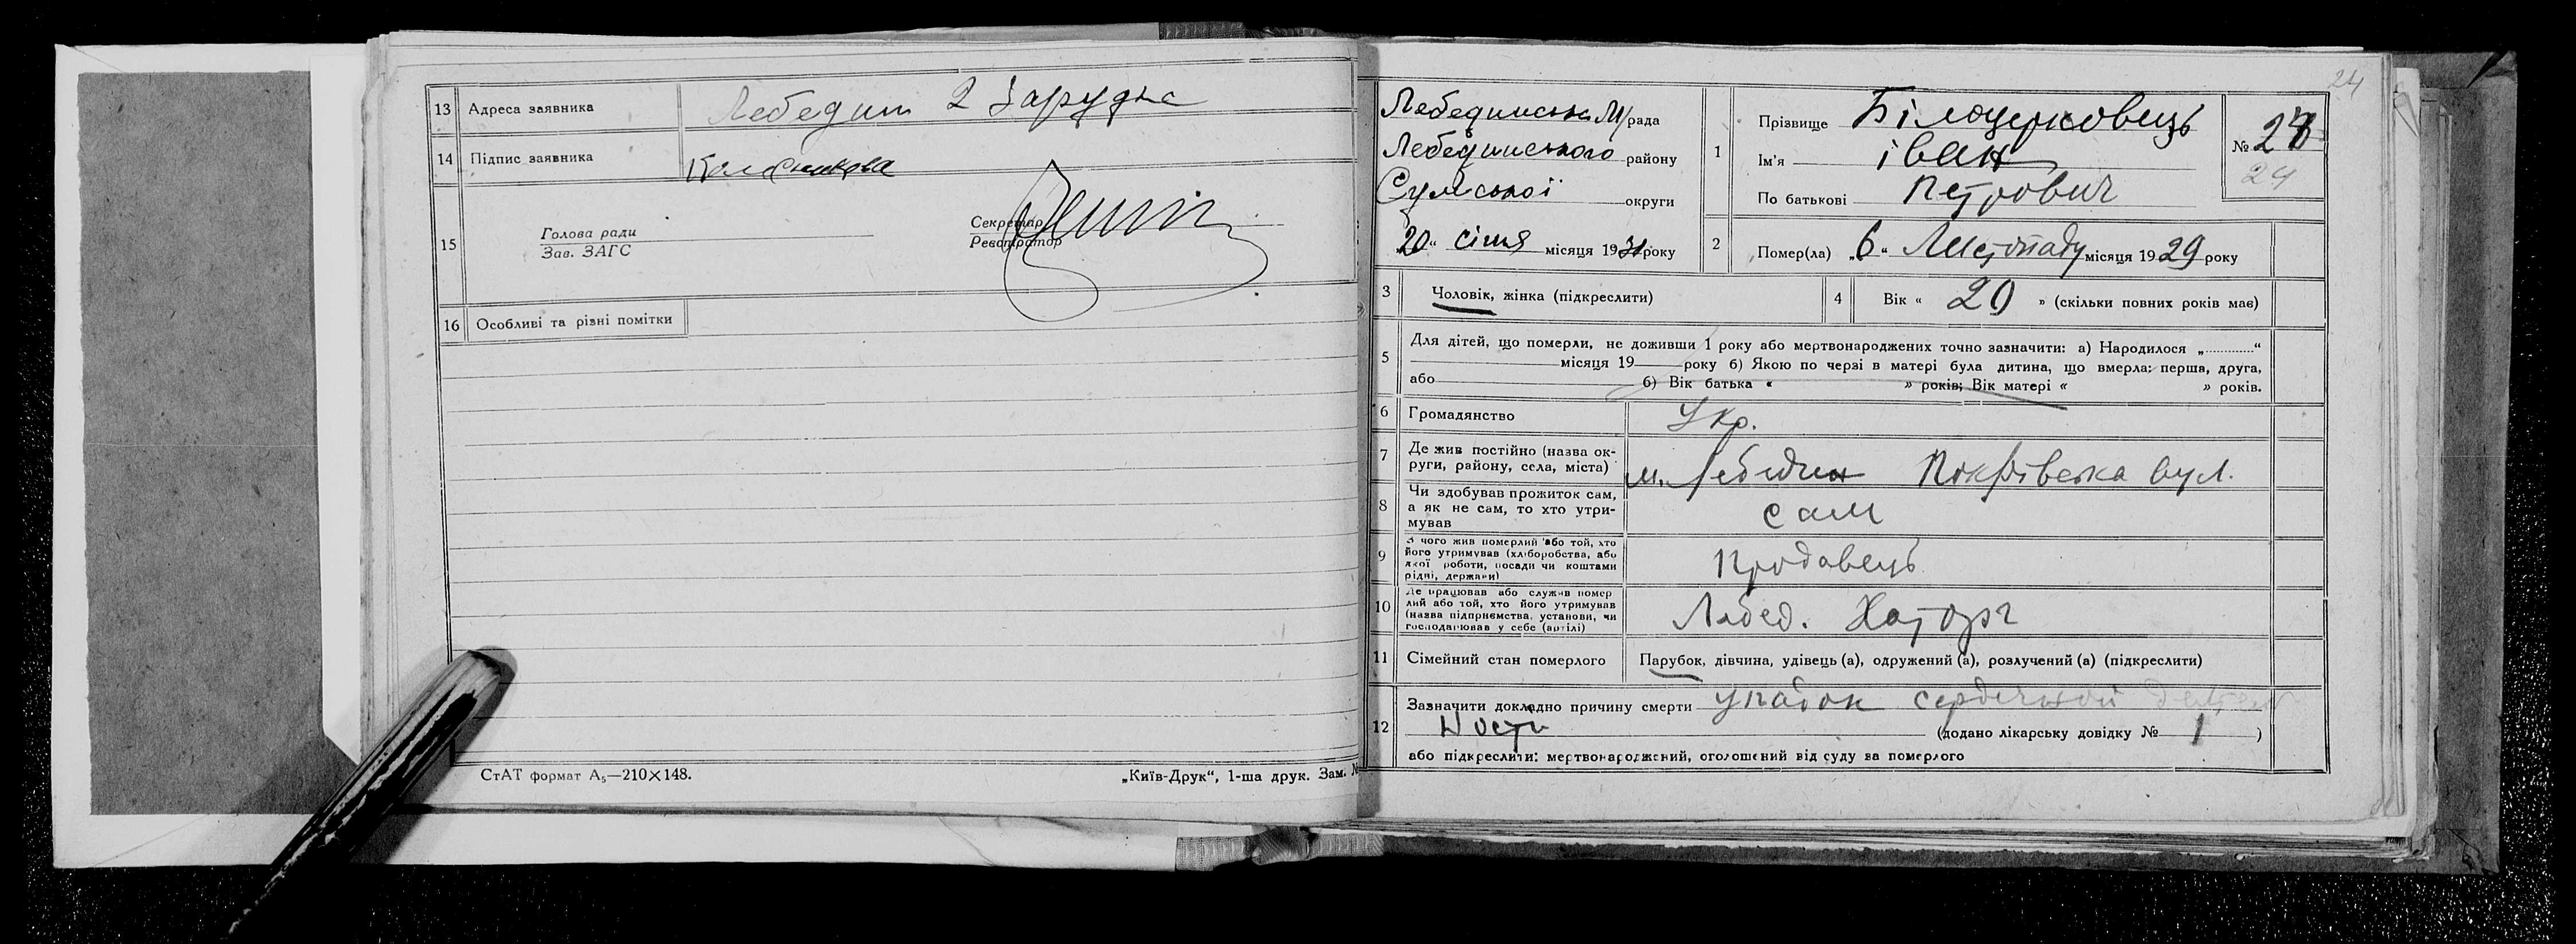 13 Адреса заявника Лебедин 2 Зарудка
14 Підпис заявника
15 Голова ради
Зав. ЗАГС
Секретар
Реєстратор
16 Особливі та різні помітки
СтАТ формат А₅—210×148.
„Київ-Друк“, 1-ша друк. Зам. №
24
Лебединська М/рада
Лебединського району
Сумської округи
„20“ січня місяця 1931 року
1 Прізвище Білоцерковець
Ім'я Іван
По батькові Петрович
№ 28
24
2 Помер(ла) „6“ Листопаду місяця 1929 року
3 Чоловік, жінка (підкреслити)
4 Вік « 20 » (скільки повних років має)
5 Для дітей, що померли, не доживши 1 року або мертвонароджених точно зазначити: а) Народилося „............“
місяця 19 року б) Якою по черзі в матері була дитина, що вмерла: перша, друга,
або б) Вік батька « » років; Вік матері « » років.
6 Громадянство Укр.
7 Де жив постійно (назва ок-
руги, району, села, міста) м. Лебедин Покрівська вул.
8 Чи здобував прожиток сам,
а як не сам, то хто утри-
мував сам
9 З чого жив померлий або той, хто
його утримував (хліборобства, або
якої роботи, посади чи коштами
рідні, держави) Продавець
10 Де працював або служив помер
лий або той, хто його утримував
(назва підприємства, установи, чи
господарював у себе (артілі) Лебед. Хаторг
11 Сімейний стан померлого Парубок, дівчина, удівець (а), одружений (а), розлучений (а) (підкреслити)
12 Зазначити докладно причину смерти упадок сердечной деятель
ности (додано лікарську довідку № 1 )
або підкреслити: мертвонароджений, оголошений від суду за померлого